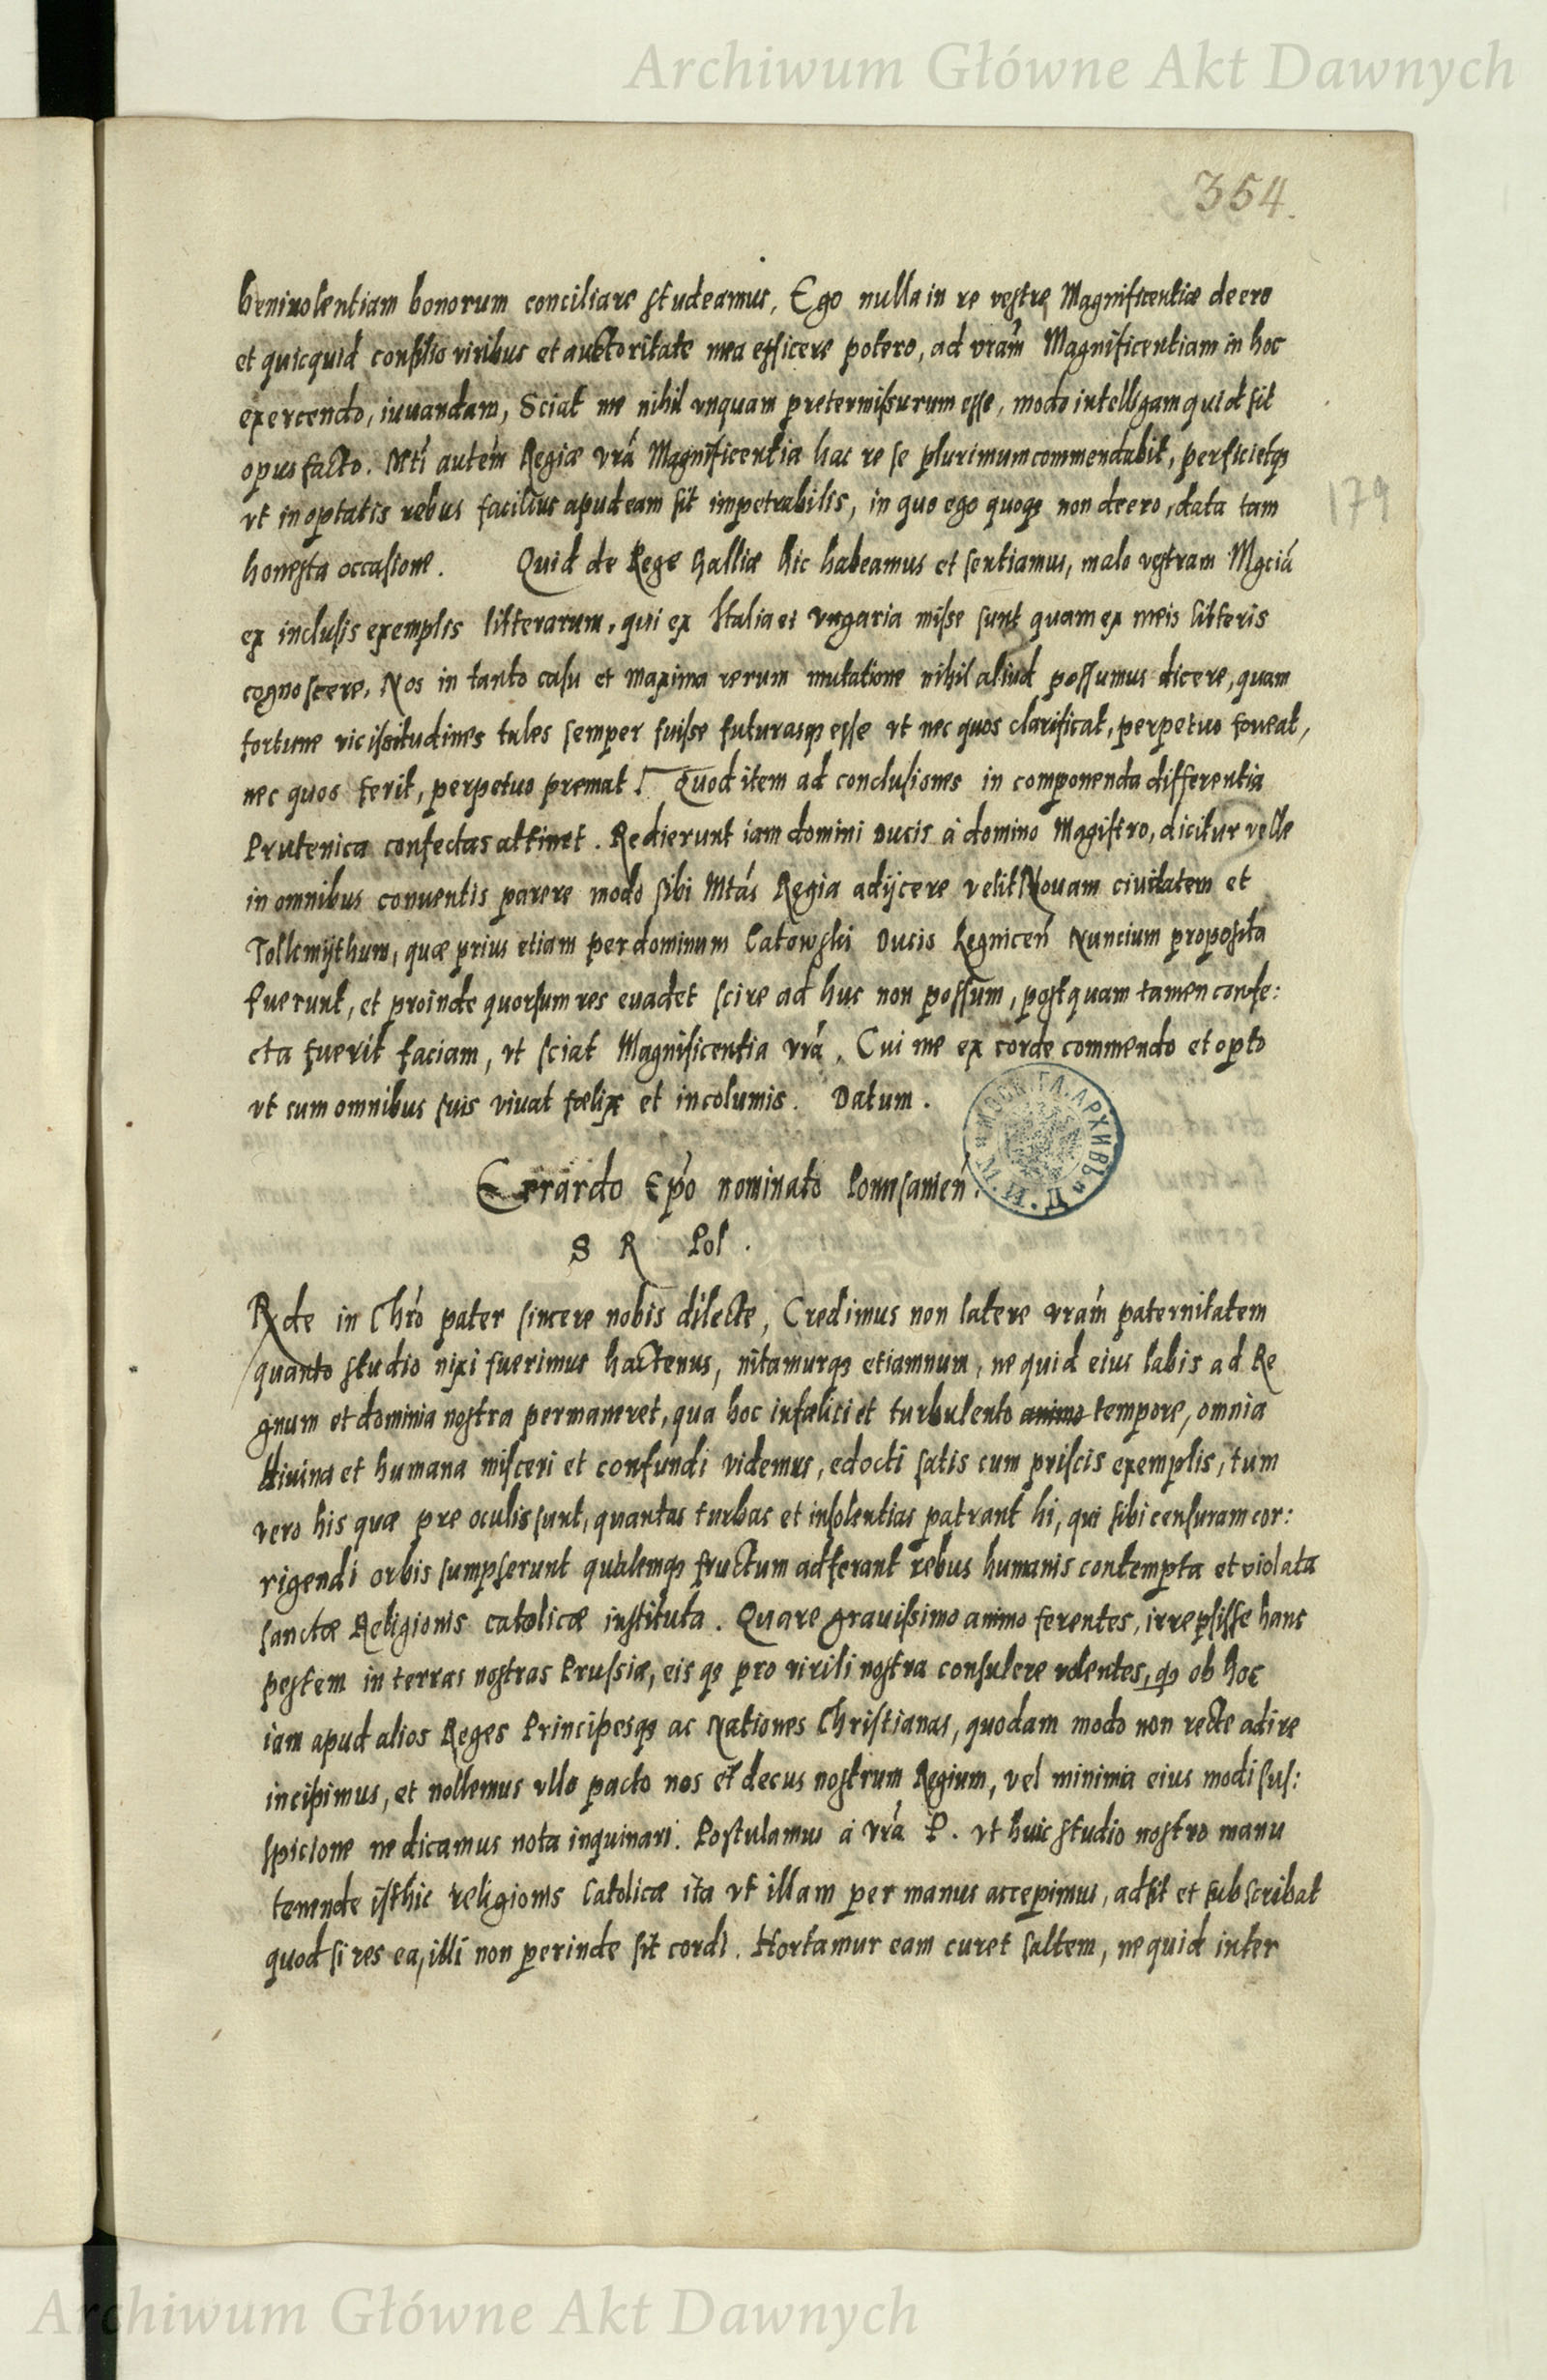 Archiwum Główne Akt Dawnych
354.
beniuolentiam bonorum conciliare studeamus, Ego nulla in re vestrę Magnificentiæ deero
et quicquid consilio viribus et auctoritate mea efficere potero, ad vrãm Magnificentiam in hoc
exercendo, iuuandam, Sciat me nihil vnquam pretermissurum esse, modo intelligam quid sit
opus facto. Mti autem Regiæ vrã Magnificentia hac re se plurimum commendabit, perficietqȝ
vt in optatis rebus facilius apud eam sit impetrabilis, in quo ego quoqȝ non deero, data tam
179
honesta occasione. Quid de Rege Galliæ hic habeamus et sentiamus, malo vestram Mgciã
ex inclusis exemplis litterarum, qui ex Italia et Vngaria misse sunt quam ex meis litteris
cognoscere, Nos in tanto casu et maxima rerum mutatione nihil aliud possumus dicere, quam
fortune vicissitudines tales semper fuisse futurasqȝ esse vt nec quos clarificat, perpetuo foueat,
nec quos ferit, perpetuo premat. Quod item ad conclusiones in componenda differentia
Prutenica confectas attinet. Redierunt iam domini Ducis à domino Magistro, dicitur velle
in omnibus conuentis parere modo sibi Mtás Regia adijcere velit Nouam ciuitatem et
Tolkmijthum, quæ prius etiam per dominum Catowski Ducis Legnicen̄ Nuncium proposita
fuerunt, et proinde quorsum res euadet scire ad huc non possum, postquam tamen confe:
cta fuerit faciam, vt sciat Magnificentia vrã. Cui me ex corde commendo et opto
vt cum omnibus suis viuat fœlix et incolumis. Datum.
Erardo Ep̃o nominato Pomsanien̄.
S R Pol.
Rde in Chr̃o pater sincere nobis dilecte, Credimus non latere vrãm paternitatem
quanto studio nixi fuerimus hactenus, nitamurqȝ etiamnum, ne quid eius labis ad Re
gnum et dominia nostra permaneret, qua hoc infœlici et turbulento animo tempore, omnia
diuina et humana misceri et confundi videmus, edocti satis cum priscis exemplis, tum
vero his quæ pre oculis sunt, quantas turbas et insolentias patrant hi, qui sibi censuram cor:
rigendi orbis sumpserunt qualemqȝ fructum adferant rebus humanis contempta et violata
sanctæ Religionis catolicæ instituta. Quare grauissimo animo ferentes, irrepsisse hanc
pestem in terras nostras Prussiæ, eis qȝ pro virili nostra consulere volentes, qȝ ob hoc
iam apud alios Reges Principesqȝ ac Nationes Christianas, quodam modo non recte adire
incipimus, et nollemus vllo pacto nos et decus nostrum Regium, vel minima eius modi sus:
spicione ne dicamus nota inquinari. Postulamus à vrã P. vt huic studio nostro manu
tenende isthic religionis Catolicæ ita vt illam per manus accepimus, adsit et subscribat
quod si res ea, illi non perinde sit cordi. Hortamur eam curet saltem, ne quid inter
Archiwum Główne Akt Dawnych